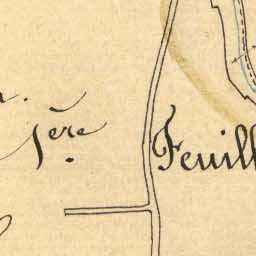 1ère
Feuill